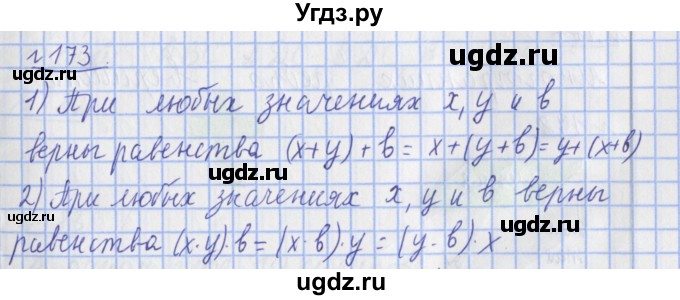 Угдз.ру
№ 173
ugdz.ru ugdz.ru
1) При любых значениях x, y и в
верны равенства (x+y) + в = x+(y+в)= y+(x+в)
ugdz.ru ugdz.ru
2) При любых значениях x, y и в верны
равенства (x·y)·в = (x·в)·y = (y·в)·x
ugdz.ru ugdz.ru